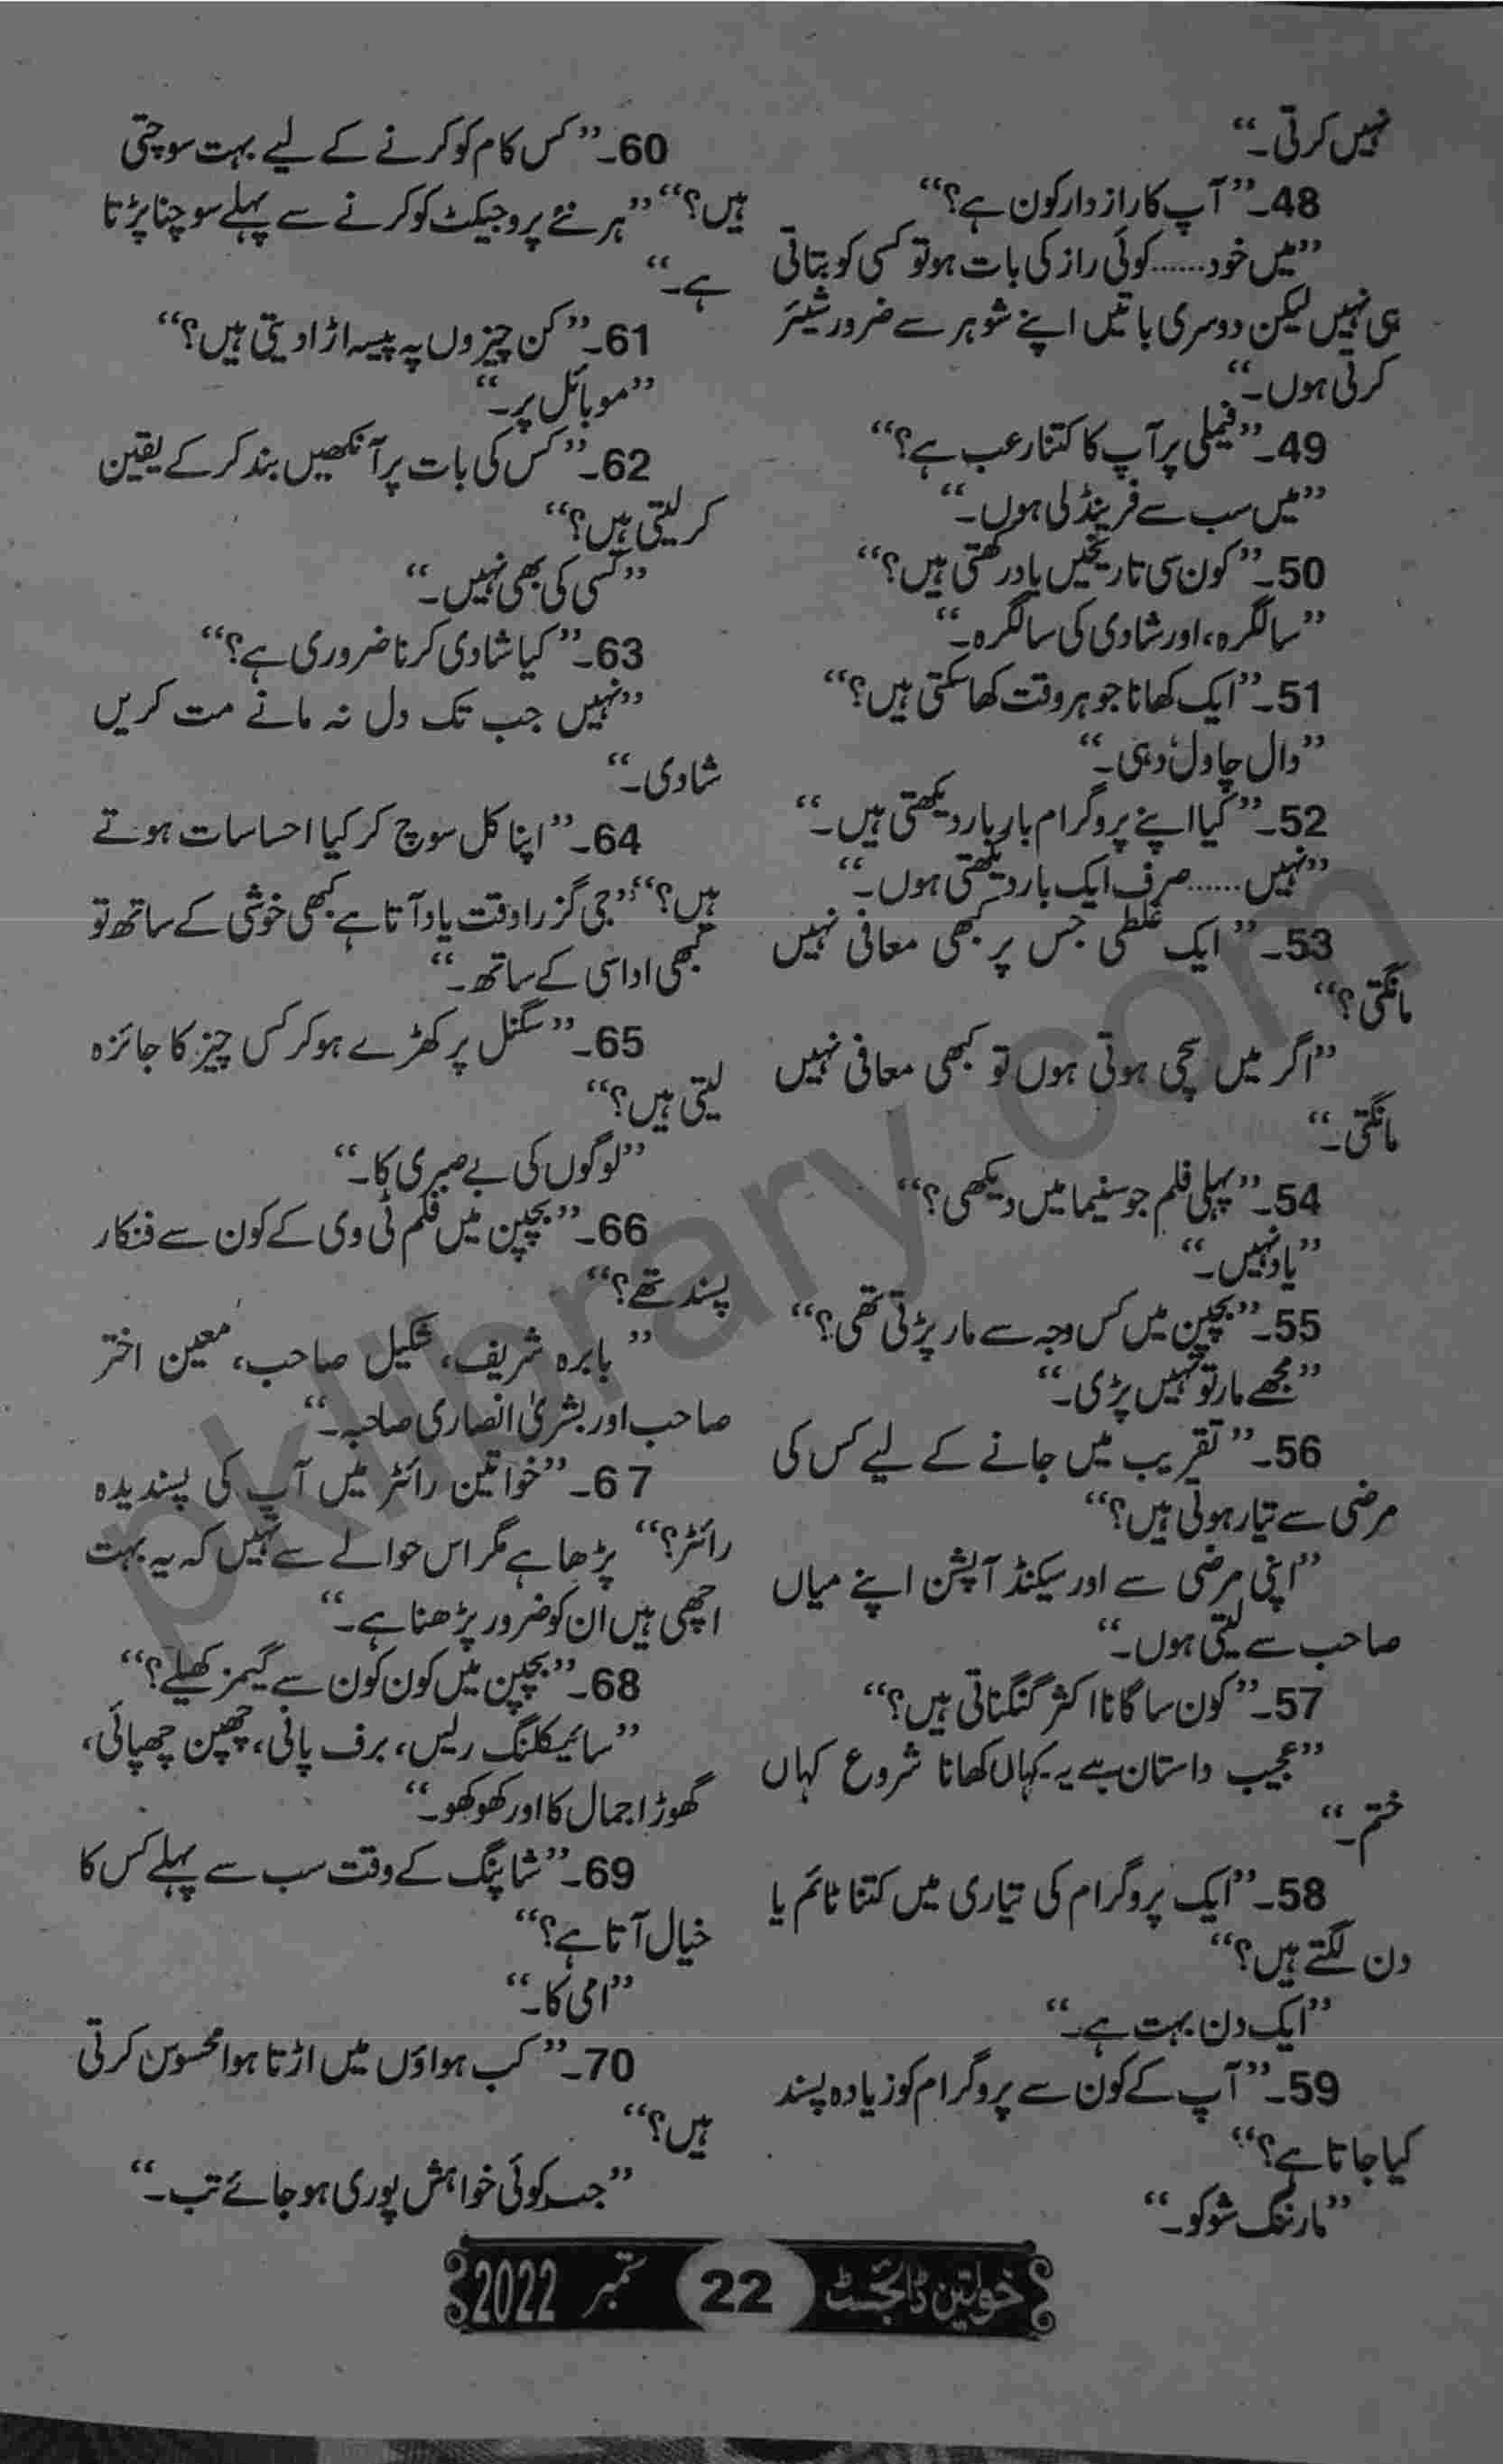 نہیں کرتی۔“
48۔”آپ کا راز دار کون ہے؟“
”میں خود......کوئی راز کی بات ہو تو کسی کو بتاتی
ہی نہیں لیکن دوسری باتیں اپنے شوہر سے ضرور شیئر
کرتی ہوں۔“
49۔”فیملی پر آپ کا کتنا رعب ہے؟“
”میں سب سے فرینڈلی ہوں۔“
50۔”کون سی تاریخیں یاد رکھتی ہیں؟“
”سالگرہ، اور شادی کی سالگرہ۔“
51۔”ایک کھانا جو ہر وقت کھا سکتی ہیں؟“
”دال چاول، دہی۔“
52۔”کیا اپنے پروگرام بار بار دیکھتی ہیں۔“
”نہیں......صرف ایک بار دیکھتی ہوں۔“
53۔”ایک غلطی جس پر کبھی معافی نہیں
مانگتی؟“
”اگر میں سچی ہوتی ہوں تو کبھی معافی نہیں
مانگتی۔“
54۔”پہلی فلم جو سنیما میں دیکھی؟“
”یاد نہیں۔“
55۔”بچپن میں کس وجہ سے مار پڑتی تھی؟“
”مجھے مار تو نہیں پڑی۔“
56۔”تقریب میں جانے کے لیے کس کی
مرضی سے تیار ہوتی ہیں؟“
”اپنی مرضی سے اور سیکنڈ آپشن اپنے میاں
صاحب سے لیتی ہوں۔“
57۔”کون سا گانا اکثر گنگناتی ہیں؟“
”عجیب داستان ہے یہ کہاں کھانا شروع کہاں
ختم۔“
58۔”ایک پروگرام کی تیاری میں کتنا ٹائم یا
دن لگتے ہیں؟“
”ایک دن بہت ہے۔“
59۔”آپ کے کون سے پروگرام کو زیادہ پسند
کیا جاتا ہے؟“
”مارننگ شو کو۔“
60۔”کس کام کو کرنے کے لیے بہت سوچتی
ہیں؟“ ”ہر نئے پروجیکٹ کو کرنے سے پہلے سوچنا پڑتا
ہے۔“
61۔”کن چیزوں پہ پیسہ اڑا دیتی ہیں؟“
”موبائل پر۔“
62۔”کس کی بات پر آنکھیں بند کر کے یقین
کر لیتی ہیں؟“
”کسی کی بھی نہیں۔“
63۔”کیا شادی کرنا ضروری ہے؟“
”نہیں جب تک دل نہ مانے مت کریں
شادی۔“
64۔”اپنا کل سوچ کر کیا احساسات ہوتے
ہیں؟“ ”جی گزرا وقت یاد آتا ہے کبھی خوشی کے ساتھ تو
کبھی اداسی کے ساتھ۔“
65۔”سگنل پر کھڑے ہو کر کس چیز کا جائزہ
لیتی ہیں؟“
”لوگوں کی بے صبری کا۔“
66۔”بچپن میں فلم ٹی وی کے کون سے فنکار
پسند تھے؟“
”بابرہ شریف، شکیل صاحب، معین اختر
صاحب اور بشریٰ انصاری صاحبہ۔“
67۔”خواتین رائٹر میں آپ کی پسندیدہ
رائٹر؟“ پڑھا ہے مگر اس حوالے سے نہیں کہ یہ بہت
اچھی ہیں ان کو ضرور پڑھنا ہے۔“
68۔”بچپن میں کون کون سے گیمز کھیلے؟“
”سائیکلنگ ریس، برف پانی، چھپن چھپائی،
گھوڑا جمال کا اور کھو کھو۔“
69۔”شاپنگ کے وقت سب سے پہلے کس کا
خیال آتا ہے؟“
”امی کا۔“
70۔”کب ہواؤں میں اڑتا ہوا محسوس کرتی
ہیں؟“
”جب کوئی خواہش پوری ہو جائے تب۔“
خواتین ڈائجسٹ 22 ستمبر 2022
pklibrary.com